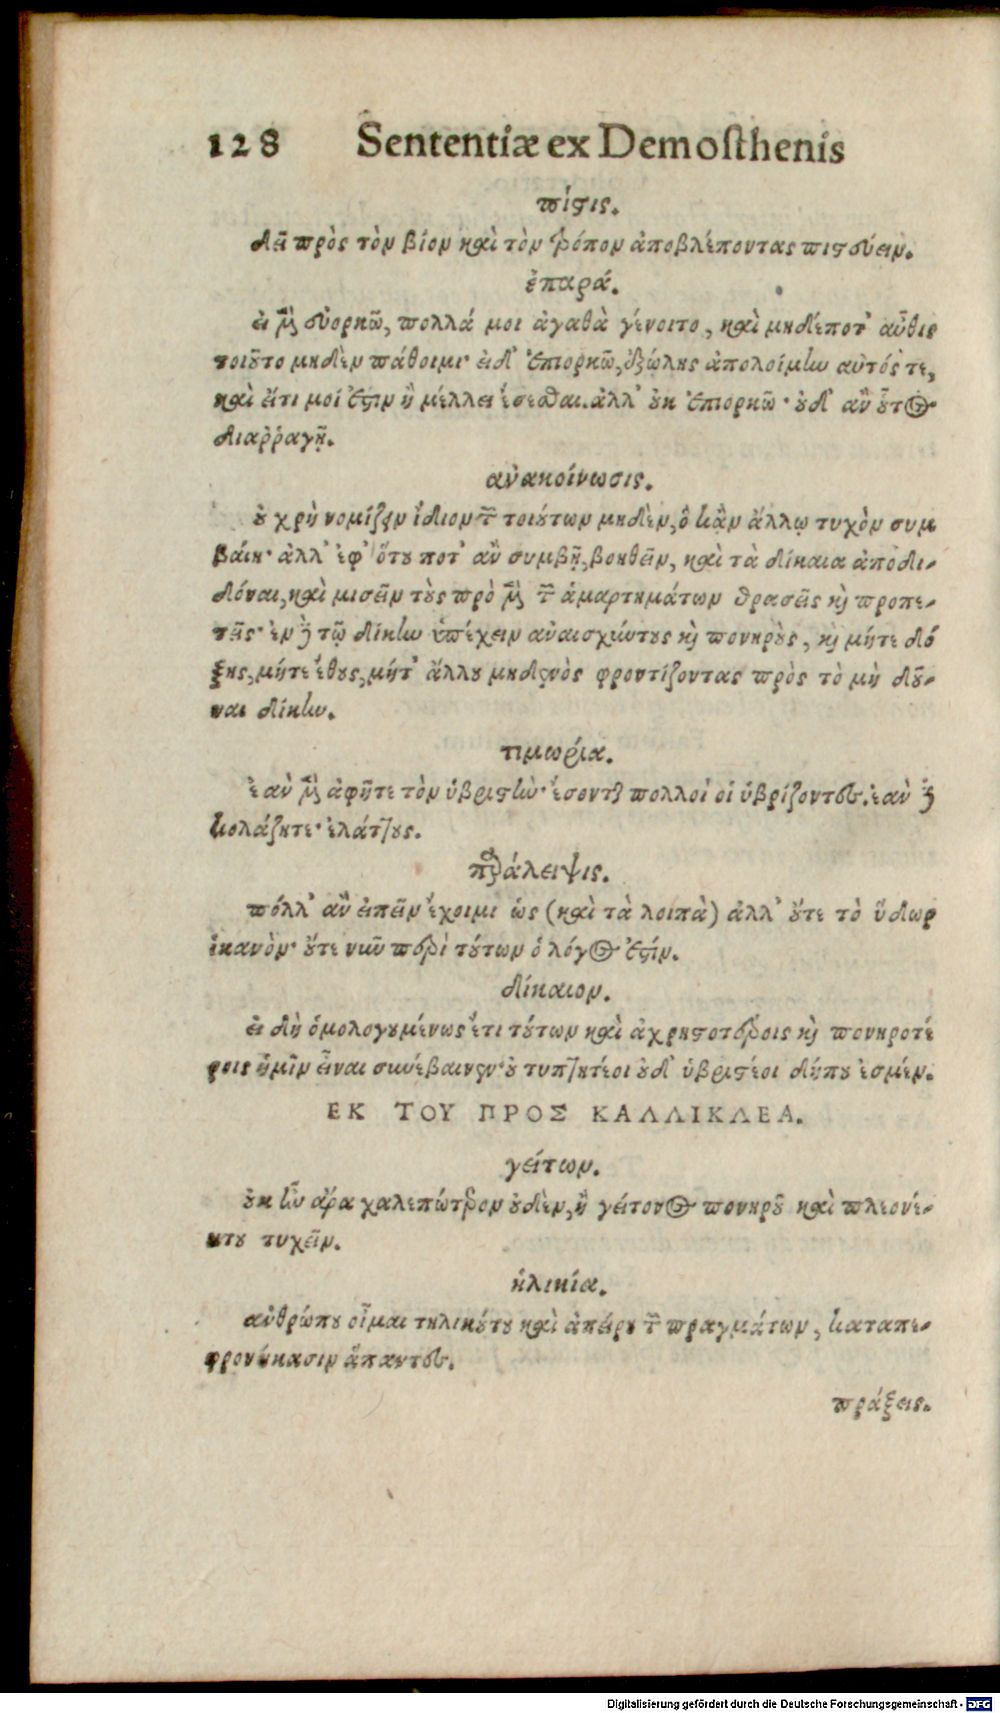 128 Sententiæ ex Demosthenis
πίςις.
δεῖ πρὸς τὸν βίον καὶ τὸν τρόπον ἀποβλέποντας πιςεύειν.
ἐπαρά.
εἰ μὲν εὐορκῶ, πολλά μοι ἀγαθὰ γένοιτο, καὶ μηδέποτ' αὖθις
τοιοῦτο μηδὲν πάθοιμι· εἰ δ' ἐπιορκῶ, ἐξώλης ἀπολοίμην αὐτός τε,
καὶ εἴτι μοί ἐςιν ἢ μέλλει ἔσεσθαι. ἀλλ' οὐκ ἐπιορκῶ· οὐδ' ἂν οὗτος
διαῤῥαγῇ.
ἀνακοίνωσις.
οὐ χρὴ νομίζειν ἴδιον τῶν τοιούτων μηδὲν, ὃ κἂν ἄλλῳ τυχὸν συμ
βαίη· ἀλλ' ἐφ' ὅτου ποτ' ἂν συμβῇ, βοηθεῖν, καὶ τὰ δίκαια ἀποδι-
δόναι, καὶ μισεῖν τοὺς πρὸ μὲν τῶν ἁμαρτημάτων θρασεῖς καὶ προπε-
τεῖς· ἐν δὲ τῷ δίκην ὑπέχειν ἀναισχύντους καὶ πονηροὺς, καὶ μήτε δό
ξης, μήτε ἔθους, μήτ' ἄλλου μηδενὸς φροντίζοντας πρὸς τὸ μὴ δοῦ-
ναι δίκην.
τιμωρία.
ἐὰν μὲν ἀφῆτε τὸν ὑβριςήν· ἔσονται πολλοὶ οἱ ὑβρίζοντες. ἐὰν δὲ
κολάζητε· ἐλάττους.
παράλειψις.
πόλλ' ἂν εἰπεῖν ἔχοιμι ὡς (καὶ τὰ λοιπὰ) ἀλλ' οὔτε τὸ ὕδωρ
ἱκανὸν· οὔτε νῦν περὶ τούτων ὁ λόγος ἐςίν.
δίκαιον.
εἰ δὴ ὁμολογουμένως ἔτι τούτων καὶ ἀχρηςοτέροις καὶ πονηροτέ
ροις ἡμῖν εἶναι συνέβαινεν· οὐ τυπτητέοι οὐδ' ὑβριςέοι δήπου ἐσμέν.
ΕΚ ΤΟΥ ΠΡΟΣ ΚΑΛΛΙΚΛΕΑ.
γείτων.
οὐκ ἦν ἄρα χαλεπώτερον οὐδὲν, ἢ γείτονος πονηροῦ καὶ πλεονέ-
κτου τυχεῖν.
ἡλικία.
ἀνθρώπου οἶμαι τηλικούτου καὶ ἀπείρου τῶν πραγμάτων, καταπε-
φρονήκασιν ἅπαντες.
πράξεις.
Digitalisierung gefördert durch die Deutsche Forschungsgemeinschaft - DFG